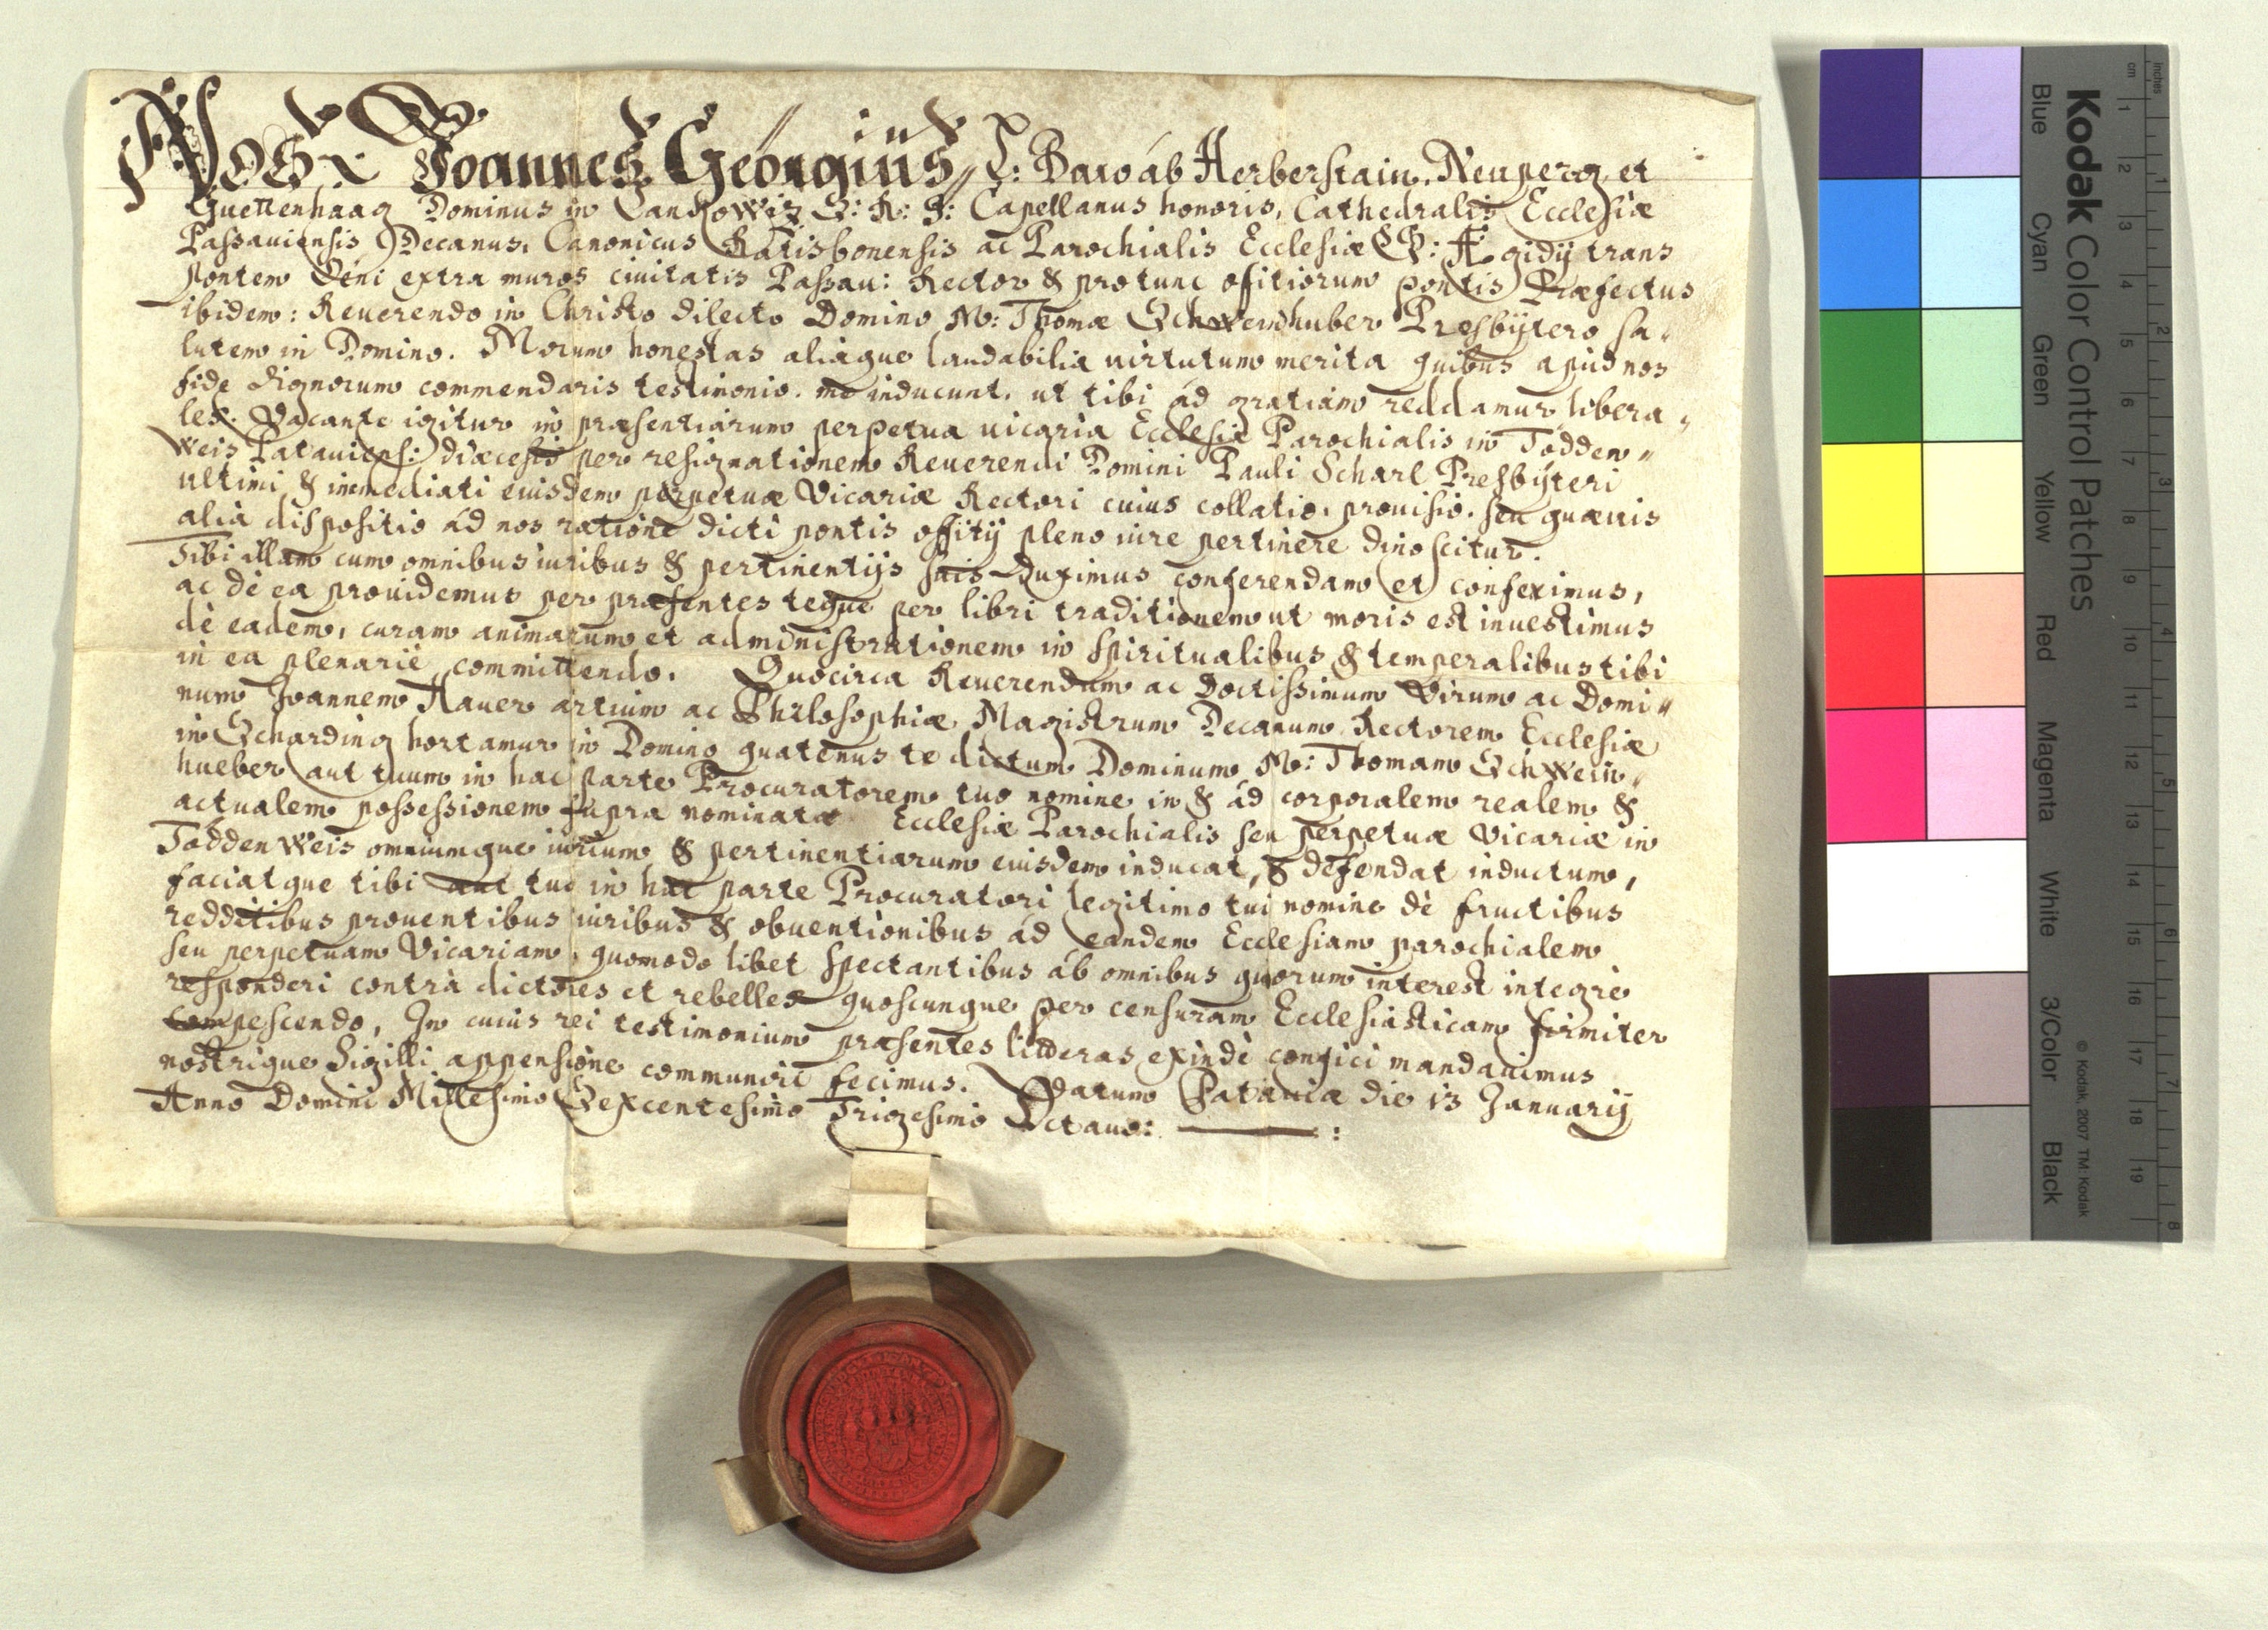 Nos Joannes Georgius L: Baro ab Herberstain, Neuperg et
Guettenhaag Dominus in Lankowiz S: R: I: Capellanus honoris, Cathedralis Ecclesiæ
Passauiensis Decanus, Canonicus Ratisbonensis ac Parochialis Ecclesiæ S: Ægidij trans
pontem Oeni extra muros ciuitatis Passau: Rector & pro tunc ofitiorum pontis Præfectus
ibidem: Reuerendo in Christo dilecto Domino M: Thomæ Schweinhuber Presbÿtero sa„
lutem in Domino. Morum honestas aliaque laudabilia uirtutum merita quibus apud nos
fide dignorum commendaris testimonio. me inducunt, ut tibi ad gratiam reddamur libera„
les. Vacante igitur in præsentiarum perpetua uicaria Ecclesiæ Parochialis in Tödden„
weis Patauiens: diæcesis per resignationem Reuerendi Domini Pauli Scharl Presbÿteri
ultimi & immediati euisdem perpetuæ Vicariæ Rectori cuius collatio, prouisio, seu quæuis
alia dispositio ad nos ratione dicti pontis offitij pleno iure pertinere dinoscitur.
Tibi illam cum omnibus iuribus & pertinentijs suis duximus conferendam et conferimus,
ac de ea prouidemus per præsentes teque per libri traditionem ut moris est inuestimus
dè eadem, curam animarum et administrationem in spiritualibus & temperalibus tibi
in ea plenariè committendo. Quocirca Reuerendum ac Doctissimum Virum ac Domi„
num Joannem Hauer artium ac Philosophiæ Magistrum Decanum Rectorem Ecclesiæ
in Scharding hortamur in Domino quatenus te dictum Dominum M: Thomam Schwein„
hueber aut tuum in hac parte Procuratorem tuo nomine in & ad corporalem realem &
actualem possessionem supra nominatæ Ecclesiæ Parochialis seu perpetuæ Vicariæ in
Töddenweis omniumque iurium & pertinentiarum euisdem inducat, & defendat inductum,
faciatque tibi aut tuo in hac parte Procuratori legitimo tui nomine dè fructibus
redditibus prouentibus iuribus & obuentionibus ad eandem Ecclesiam parochialem
seu perpetuam Vicariam, quomodo libet spectantibus ab omnibus quorum interest integrè
responderi contrà dictores et rebelles quoscunque per censuram Ecclesiasticam firmiter
compescendo, In cuius rei testimonium præsentes litteras exindè confici mandauimus
nostrique Sigilli appensione communiri fecimus. Datum Patauiæ die 13 Januarij
Anno Domini Millesimo Sexcentesimo Trigesimo Octauo:
Kodak Color Control Patches
Blue Cyan Green Yellow Red Magenta White 3/Color Black
© Kodak, 2007 TM: Kodak
cm 1 2 3 4 5 6 7 8 9 10 11 12 13 14 15 16 17 18 19
inches 1 2 3 4 5 6 7 8